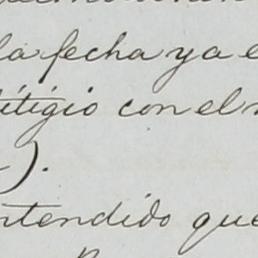 la fecha ya e
litigio con el
).
ntendido que